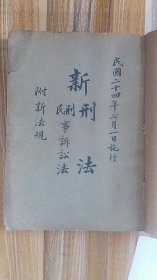 民國二十四年七月一日施行
新刑法
民刑事訴訟法
附新法規